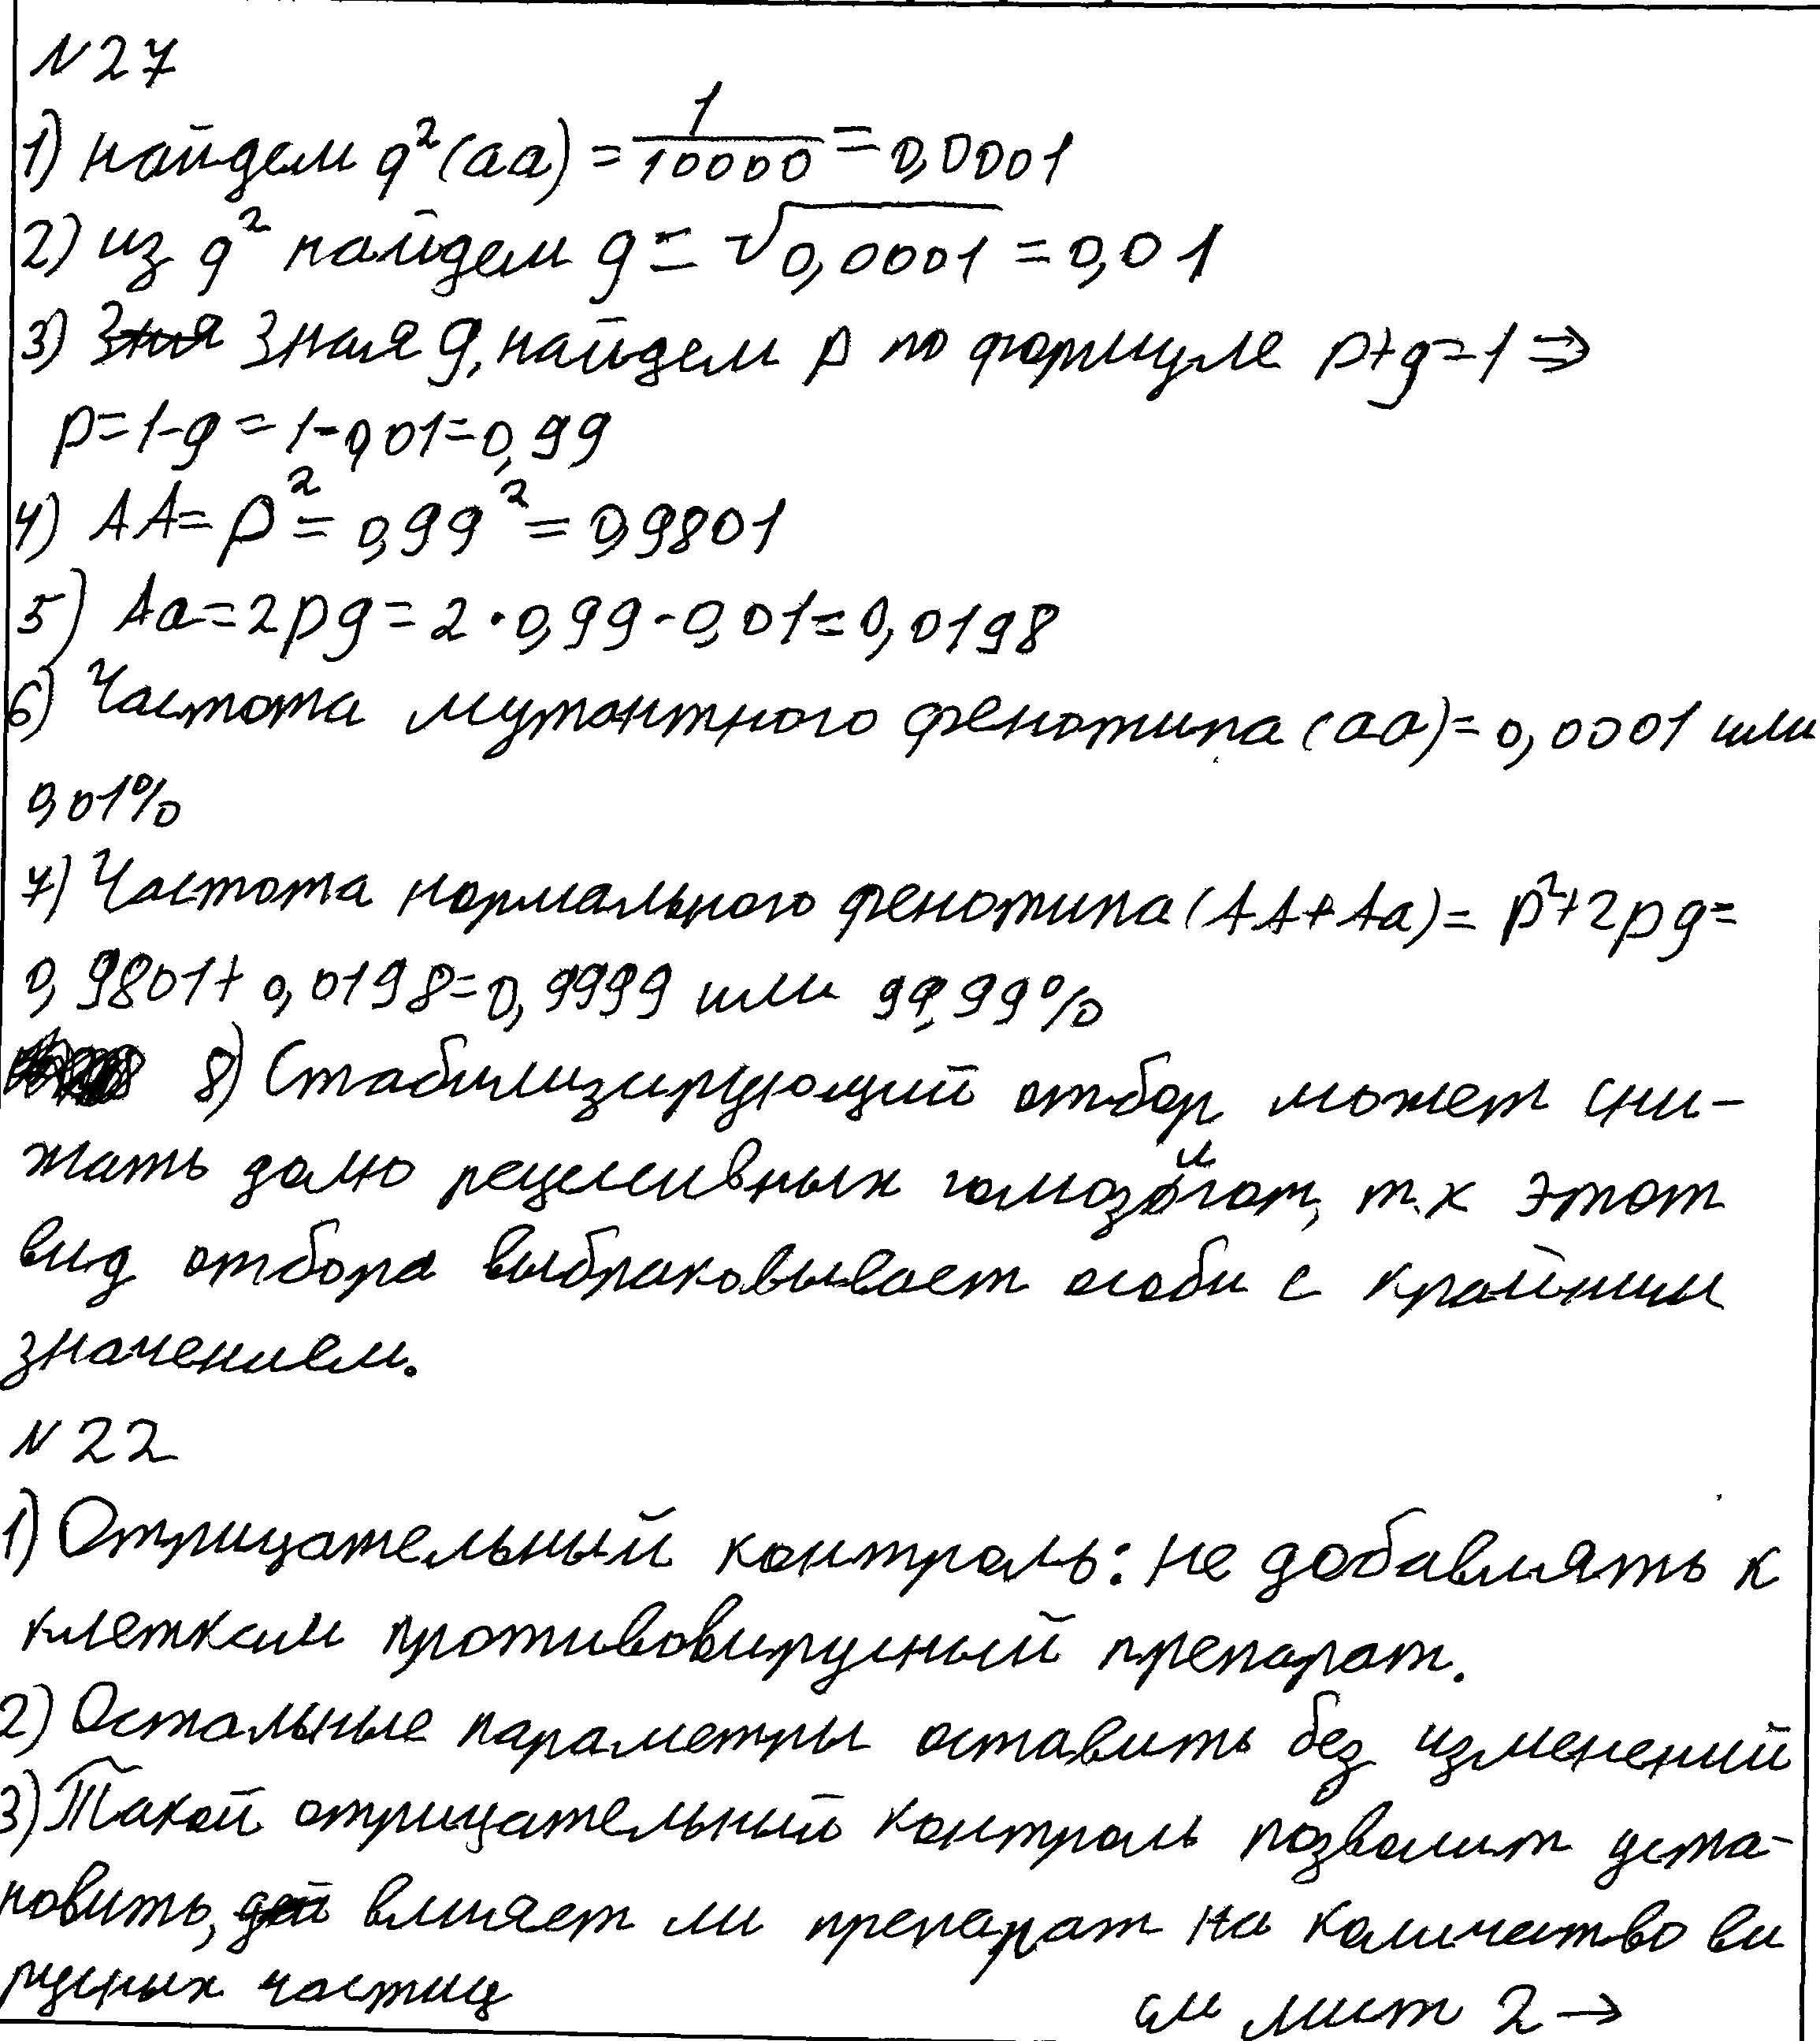 N27
1) найдем q²(aa) = 1/10000 = 0,0001
2) из q² найдем q = √0,0001 = 0,01
3) Зная q, найдем p по формуле p+q=1 ⇒
p=1-q=1-0,01=0,99
4) AA=p²=0,99²=0,9801
5) Aa=2pq=2·0,99·0,01=0,0198
6) Частота мутантного фенотипа (aa)=0,0001 или
0,01%
7) Частота нормального фенотипа (AA+Aa)= p²+2pq=
0,9801+0,0198=0,9999 или 99,99%
8) Стабилизирующий отбор может сни-
жать долю рецессивных гомозигот, т.к этот
вид отбора выбраковывает особи с крайним
значением.
N22
1) Отрицательный контроль: не добавлять к
клеткам противовирусный препарат.
2) Остальные параметры оставить без изменений
3) Такой отрицательный контроль позволит уста-
новить, влияет ли препарат на количество ви
русных частиц
см лист 2 →